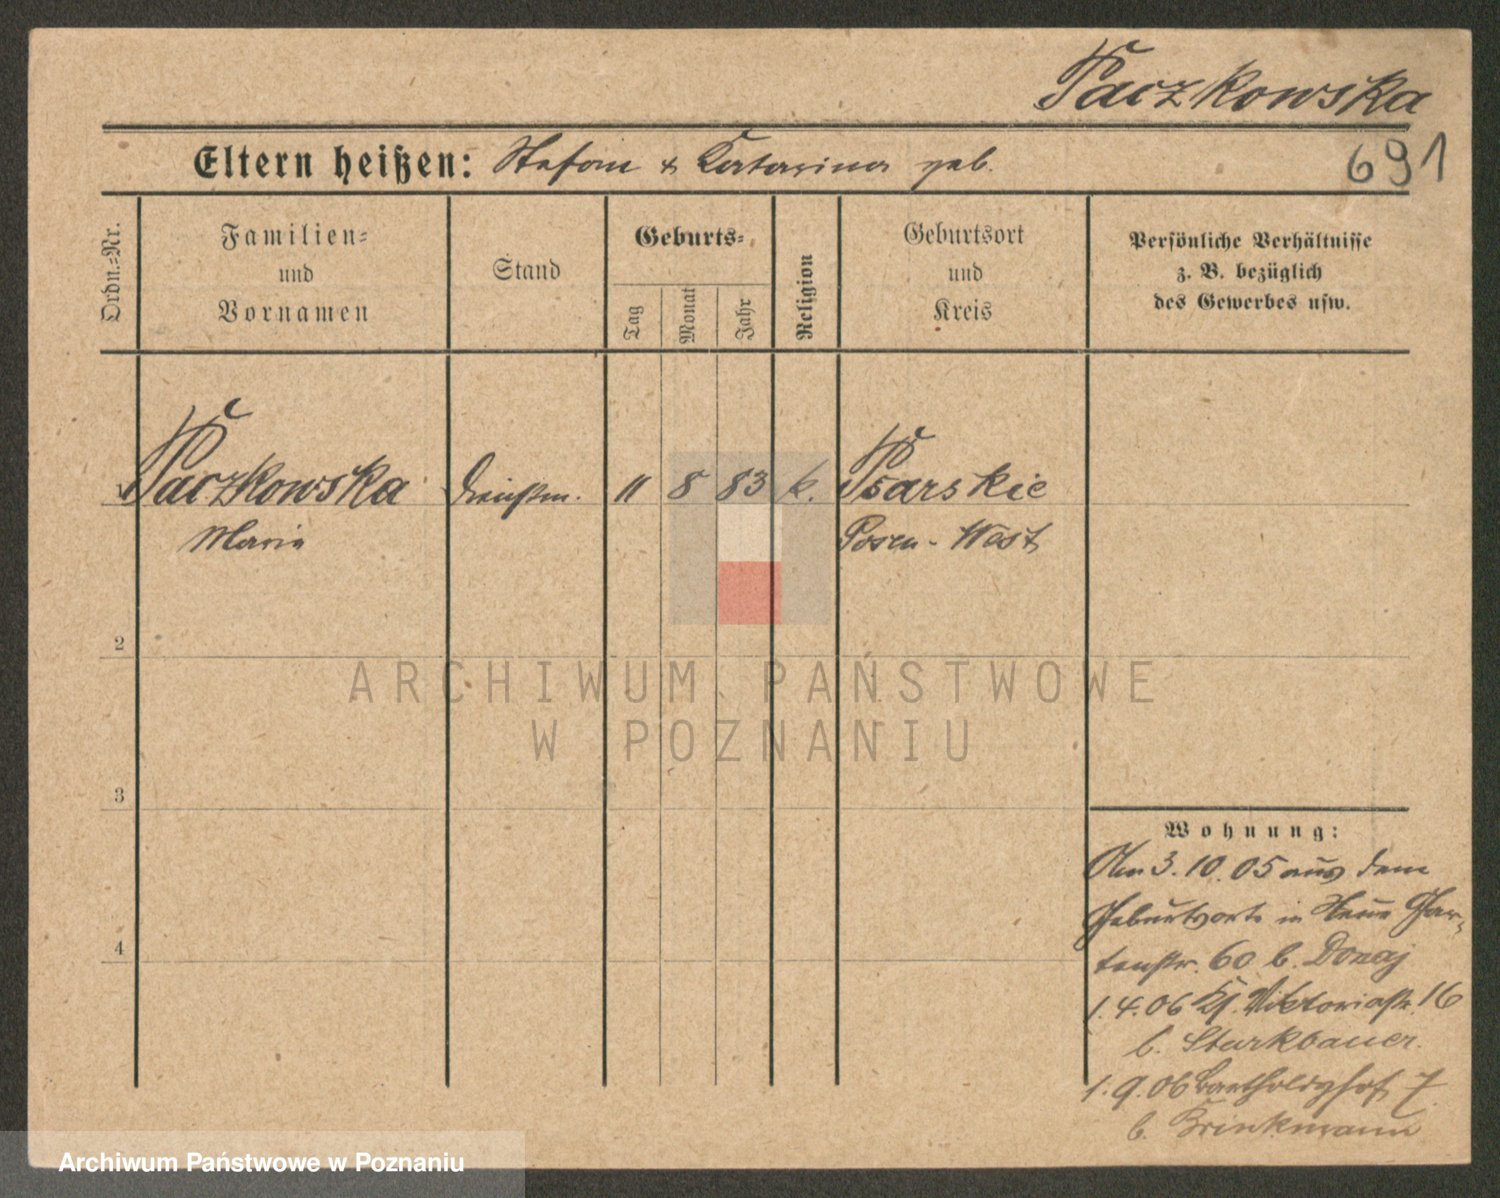 Paczkowska
691
Eltern heißen: Stefan & Katarina geb.
Ordn.-Nr.
Familien-
und
Vornamen
Stand
Geburts-
Tag
Monat
Jahr
Religion
Geburtsort
und
Kreis
Persönliche Verhältnisse
z. B. bezüglich
des Gewerbes usw.
1 Paczkowska Dienstm. 11 8 83 k. Psarskie
Marie Posen-West
2
3
4
ARCHIWUM PAŃSTWOWE
W POZNANIU
Wohnung:
Am 3.10.05 aus dem
Geburtsorte in Neue Gar-
tenstr. 60 b. Donaj
1.4.06 Kl. Viktoriastr. 16
b. Starkbauer.
1.9.06 Bartholdyhof 7
b. Brinkmann
Archiwum Państwowe w Poznaniu